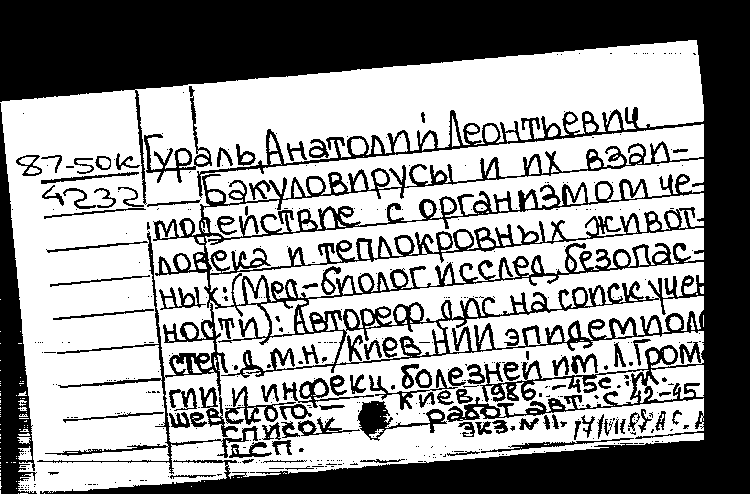 87-50к Гураль, Анатолий Леонтьевич.
4232 Бакуловирусы и их взаи-
модействие с организмом че-
ловека и теплокровных живот-
ных: (Мед.-биолог. исслед. безопас-
ности): Автореф. дис. на соиск. учен
степ. д.м.н. /Киев. НИИ эпидемиоло
гии и инфекц. болезней им. Л. Гром
шевского. – Киев, 1986. – 45с. : т.
Список работ авт.: с 42-45
ДСП. экз. №11.